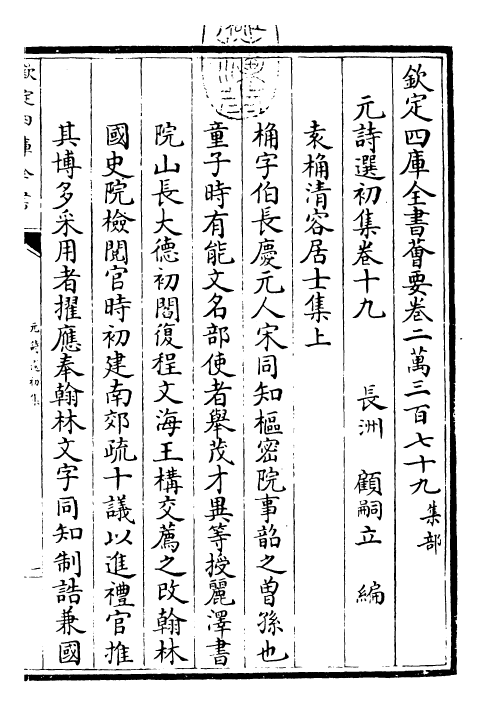 欽定四庫全書薈要卷二萬三百七十九 集部
元詩選初集卷十九 長洲 顧嗣立 編
袁桷清容居士集上
桷字伯長慶元人宋同知樞密院事韶之曾孫也
童子時有能文名部使者舉茂才異等授麗澤書
院山長大德初閻復程文海王構交薦之改翰林
國史院檢閱官時初建南郊疏十議以進禮官推
其博多采用者擢應奉翰林文字同知制誥兼國
欽定四庫全書
元詩選初集